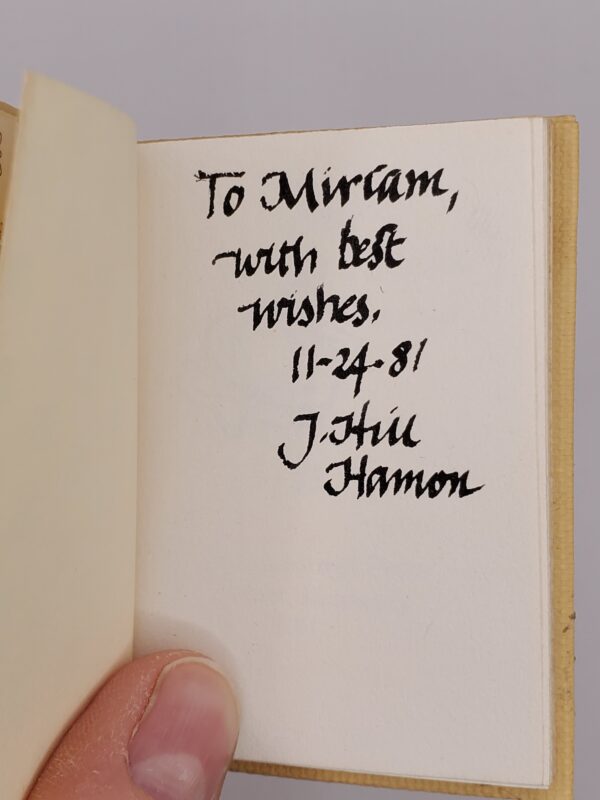 To Miriam,
with best
wishes.
11-24-81
J. Hill
Hamon